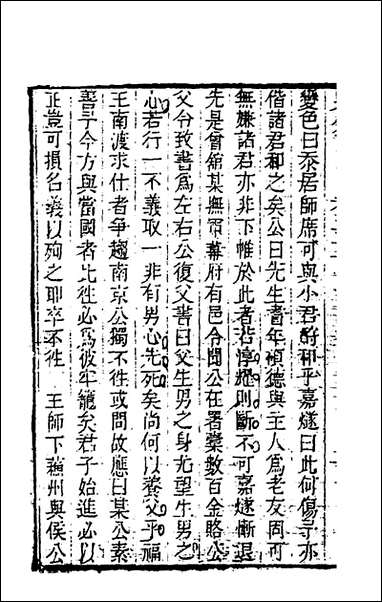 變色曰忝居師席可與小君酧和乎嘉燧曰此何傷予亦
偕諸君和之矣公曰先生耆年碩德與主人爲老友固可
無嫌諸君亦非下帷於此者若淳耀則斷不可嘉燧慚退
先是曾舘某撫軍幕府有邑令聞公在署橐數百金賂公
父令致書爲左右公復父書曰父生男之身尤望生男之
心若行一不義取一非有男心先死矣尚何以養父乎福
王南渡求仕者爭趨南京公獨不徃或問故應曰某公素
善予今方與當國者比徃必爲彼牢籠矣君子始進必以
正豈可損名義以殉之耶卒不徃　王師下蘓州與侯公